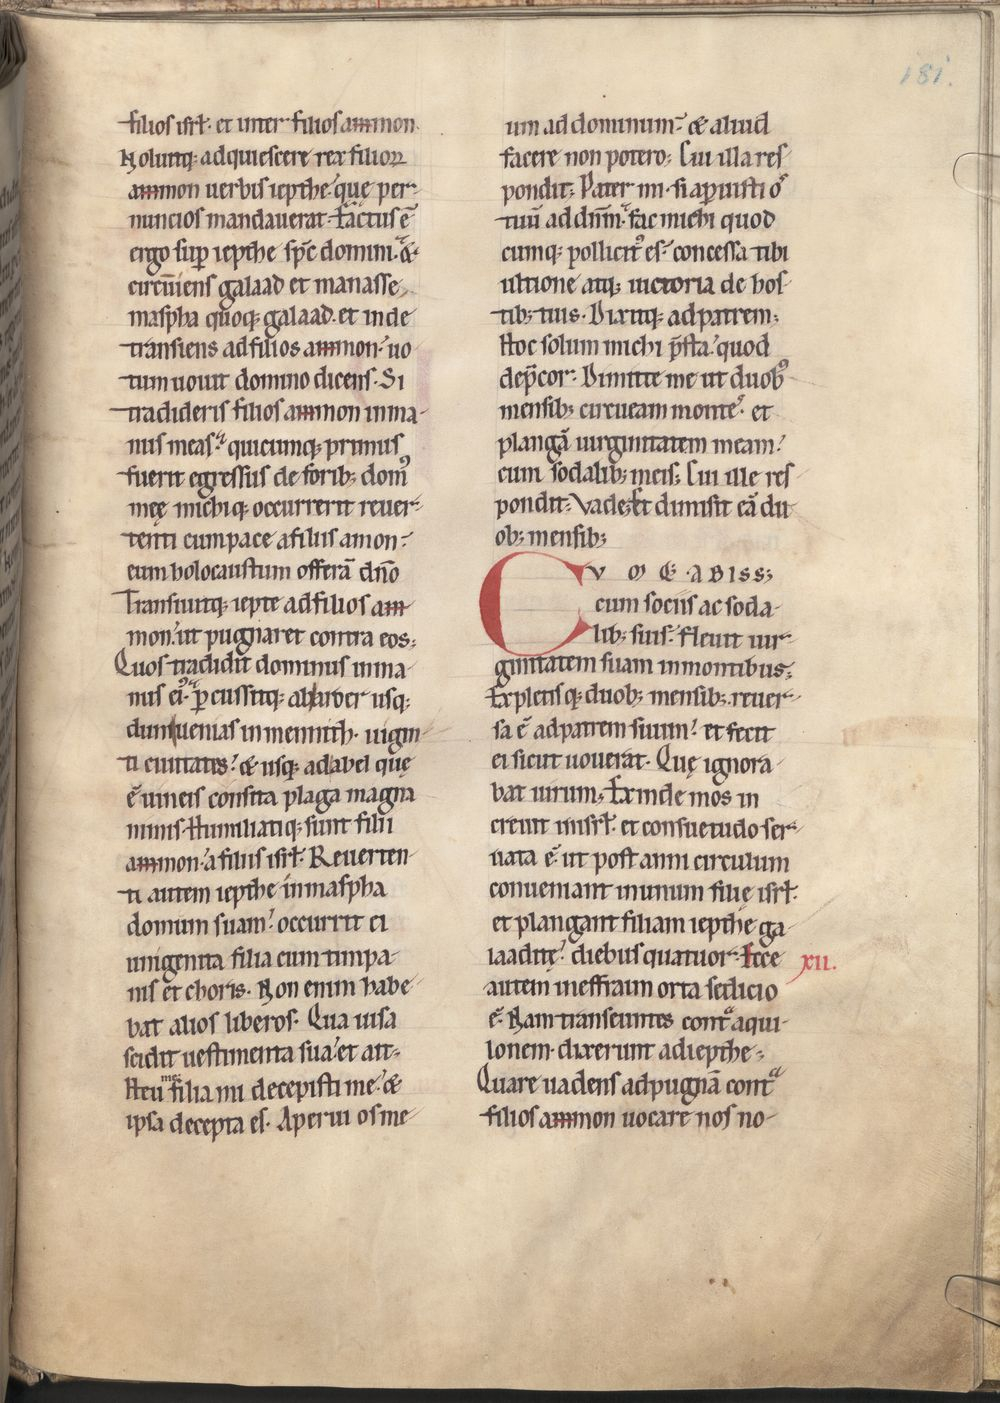 181.
filios isrł. et inter filios ammon.
Noluitq; adquiescere rex filioꝝ
ammon uerbis iepthe quę per-
nuncios mandauerat. Factus ē
ergo sup iepthe spc domini. &
circūiens galaad et manasse.
maspha quoq; galaad. et inde
transiens ad filios ammon. uo
tum uouit domino dicens. Si
tradideris filios ammon inma-
nus meas. quicumq; primus
fuerit egressus de forib; dom
meę michiq; occurrerit reuer-
tenti cum pace a filiis amon.
eum holocaustum offerā dño
Transiuitq; iepte ad filios am
mon. ut pugnaret contra eos;
Quos tradidit dominus inma-
nus ei. percussitq; ab aroer usq;
dum uenias in mennith. uigin
ti ciuitates. & usq; ad abel quę
ē uineis consita plaga magna
nimis. Humiliatiq; sunt filii
ammon. a filiis isrł. Reuerten-
ti autem iepthe inmaspha
domum suam. occurrit ei
unigenita filia cum timpa-
nis et choris. Non enim habe-
bat alios liberos. Qua uisa
scidit uestimenta sua. et ait.
Heu me filia mi decepisti me. &
ipsa decepta es. Aperui os me-
um ad dominum. & aliud
facere non potero; Cui illa res-
pondit; Pater mi. si aperuisti os
tuū ad dñm. fac michi quod
cumq; pollicitꝰ es. concessa tibi
ultione atq; uictoria de hos-
tib; tuis. Dixitq; ad patrem;
Hoc solum michi p̄sta. quod
dep̄cor. Dimitte me ut duobꝰ
mensib; circueam monteˢ. et
plangā uirginitatem meam.
cum sodalib; meis; Cui ille res-
pondit; Vade. Et dimisit eā du
ob; mensib;
CVMQE ABISS;
cum sociis ac soda-
lib; suis. fleuit uir-
ginitatem suam in montibus;
Expletisq; duob; mensib; reuer-
sa ē ad patrem suum. et fecit
ei sicut uouerat. Quę ignora
bat uirum; Exinde mos in
creuit inisrł. et consuetudo ser-
uata ē. ut post anni circulum
conueniant inunum filię isrł.
et plangant filiam iepthe ga-
laaditę. diebus quatuor. Ecce
xii.
autem in effraim orta sedicio
ē. Nam transeuntes contᵃ aqui-
lonem. dixerunt ad iepthe;
Quare uadens ad pugnā contᵃ
filios ammon uocare nos no-